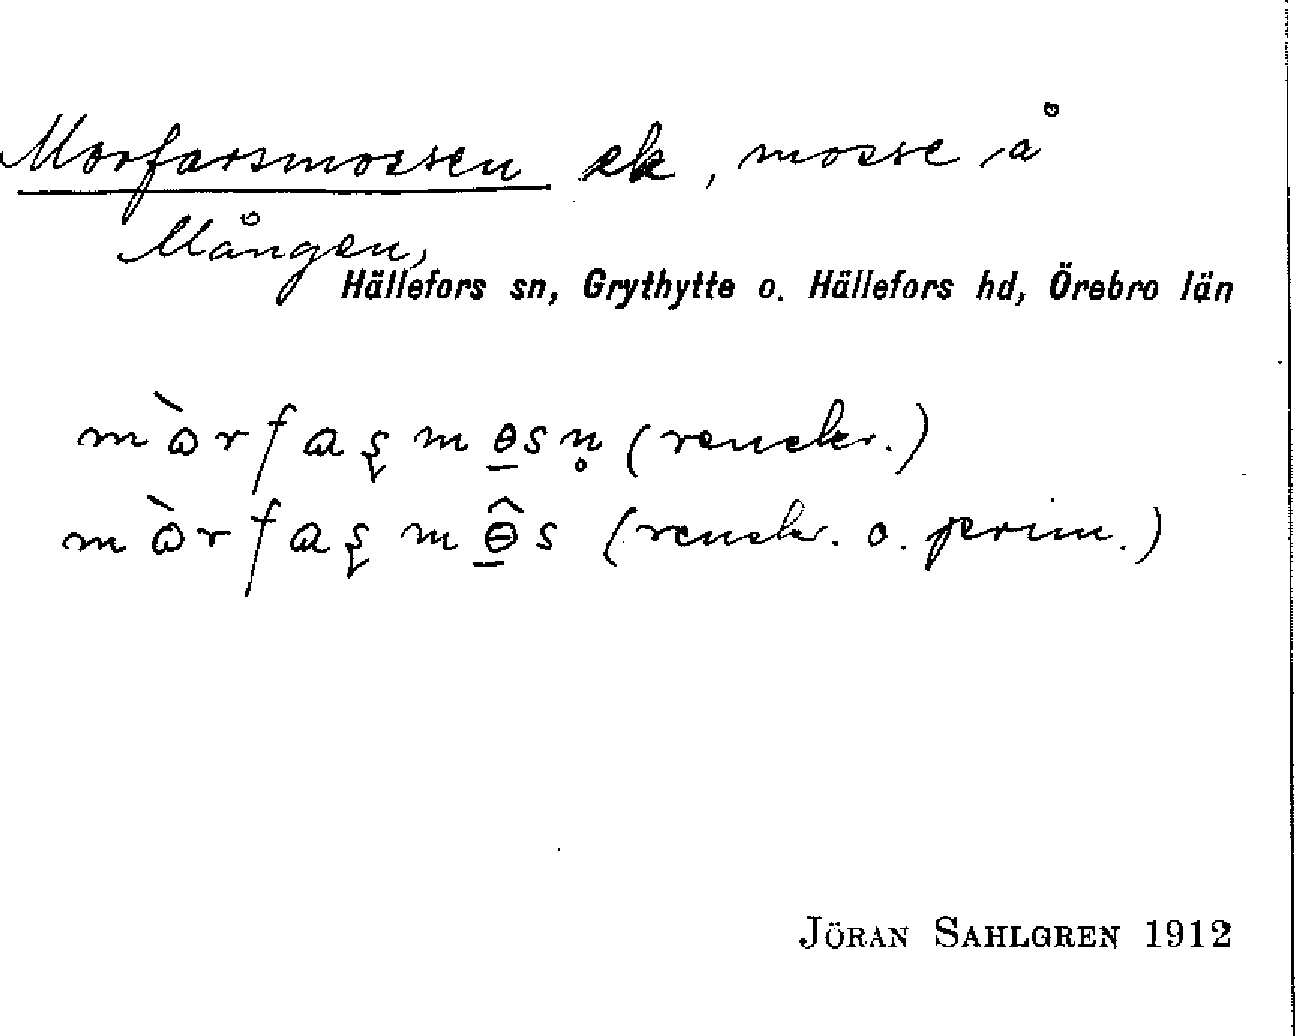 Morfarsmossen ek, mosse å
Mången,
Hällefors sn, Grythytte o. Hällefors hd, Örebro län
mὼrfaʂmɵ̲sn̥ (renskr.)
mὼrfaʂmɵ̲̂s (renskr. o. prim.)
JÖRAN SAHLGREN 1912